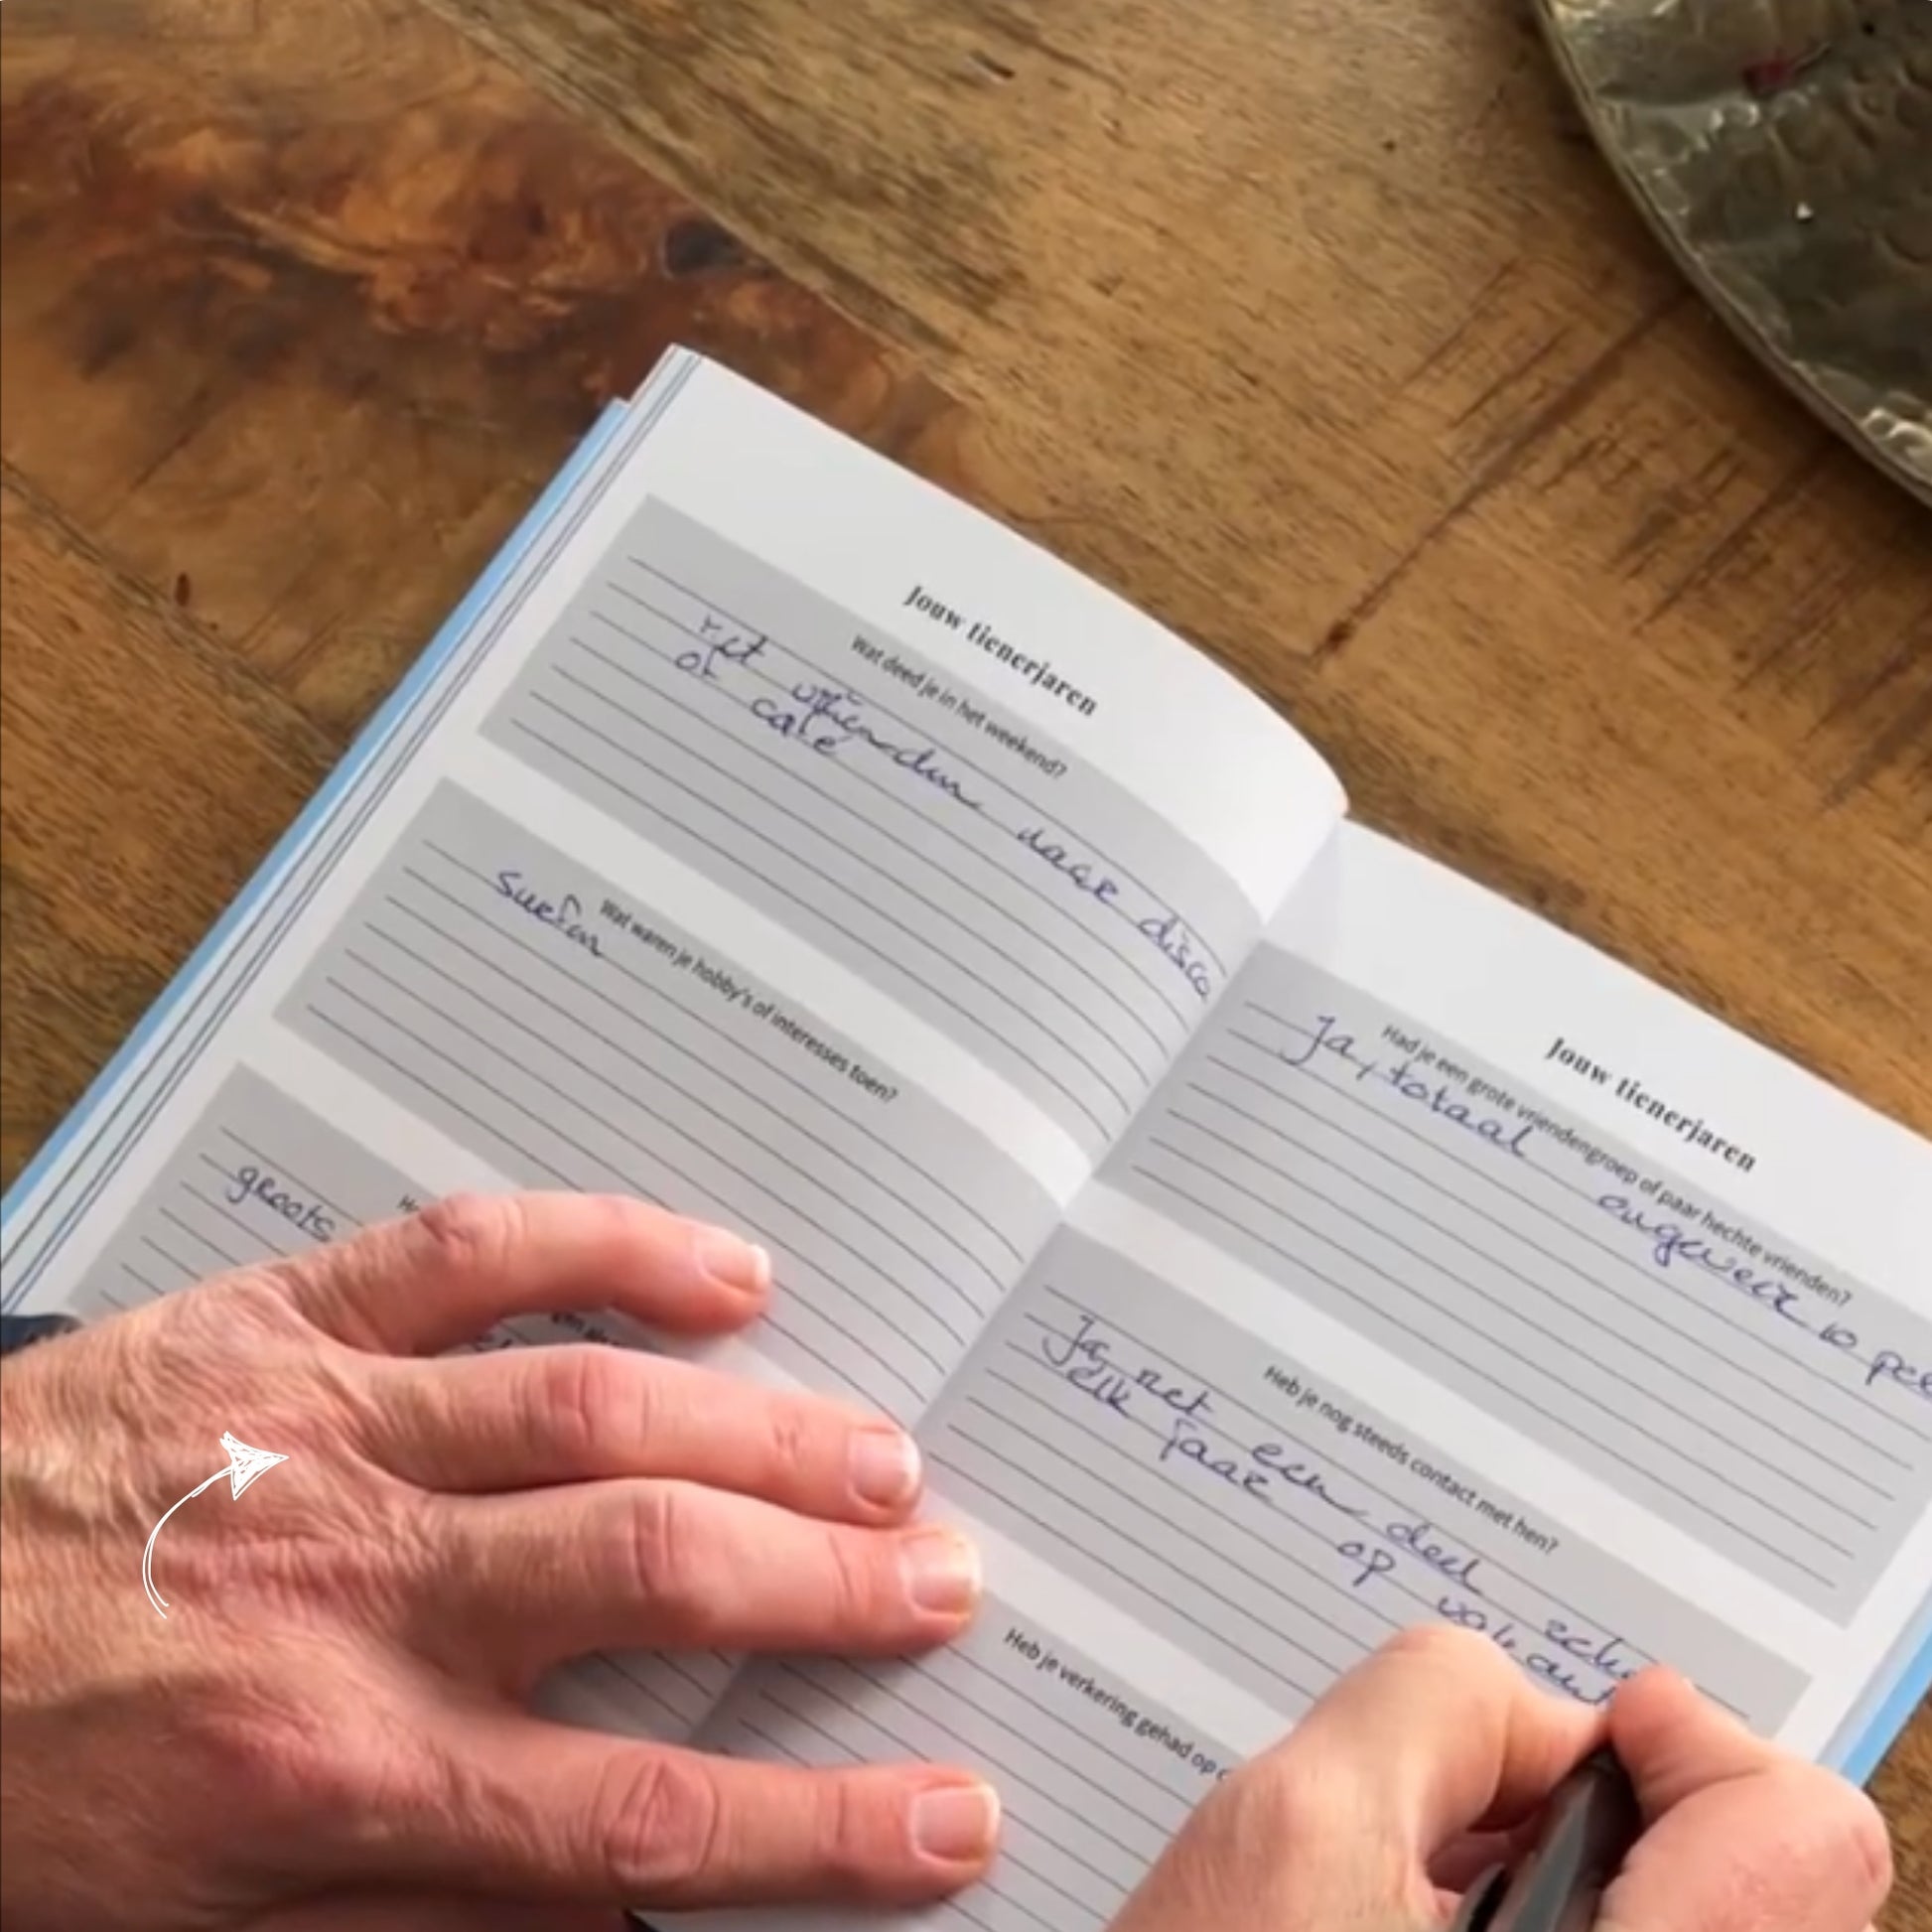 Jouw tienerjaren
Wat deed je in het weekend?
met vrienden naar disco
of café
Wat waren je hobby's of interesses toen?
surfen
groots
Jouw tienerjaren
Had je een grote vriendengroep of paar hechte vrienden?
Ja, totaal ongeveer 10
Heb je nog steeds contact met hen?
Ja, met een deel
elk jaar op
Heb je verkering gehad op